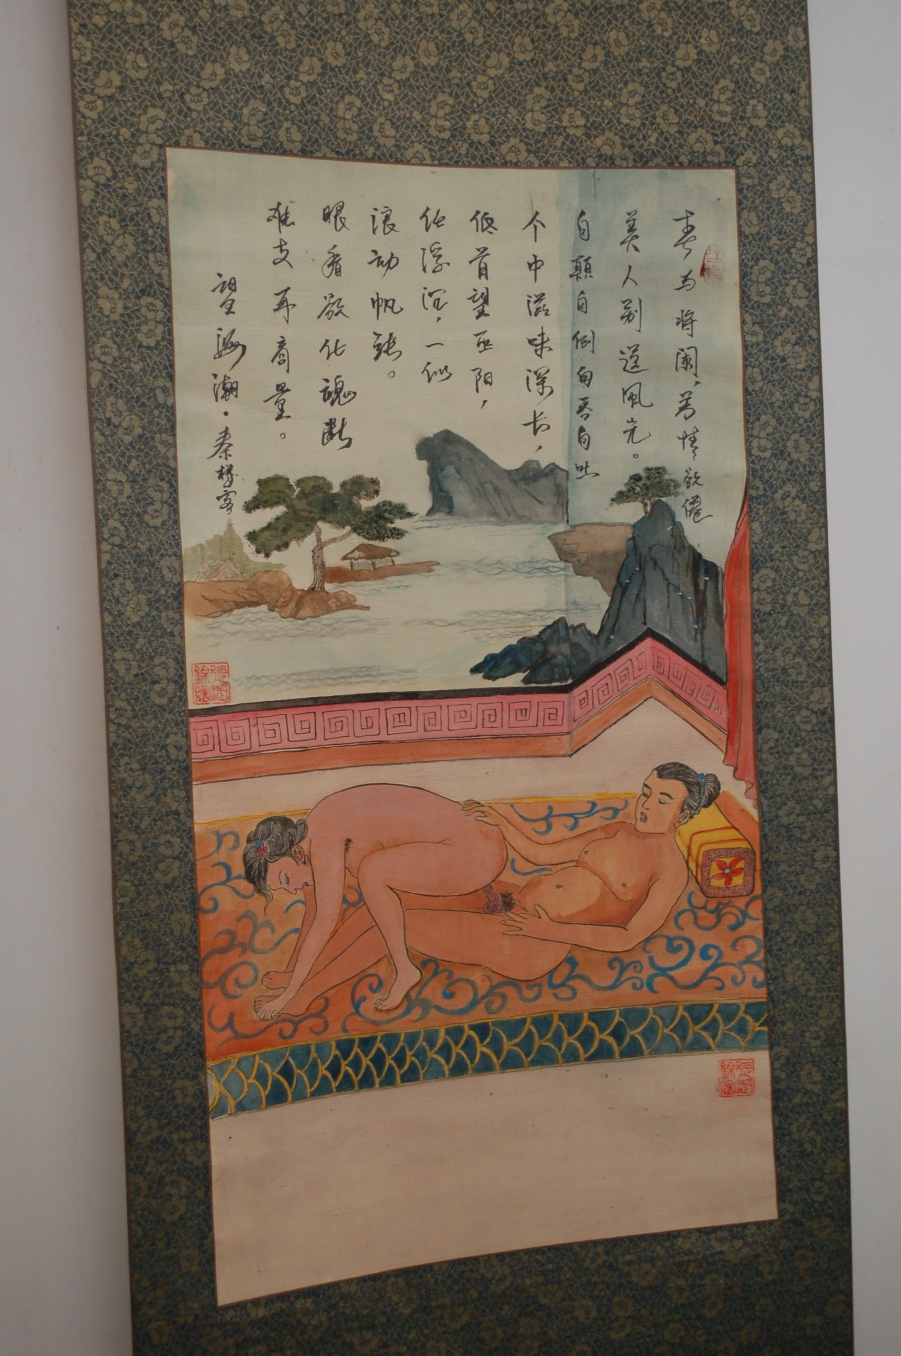 春宵将阑，为情欲僵
美人别逞风光。
自颠自倒自吞自吐
个中滋味深长，
低首望巫阳，
任浮沉，一似
浪动帆张。
眼看欲化魂断
难支再商量。
望海潮·秦楼客